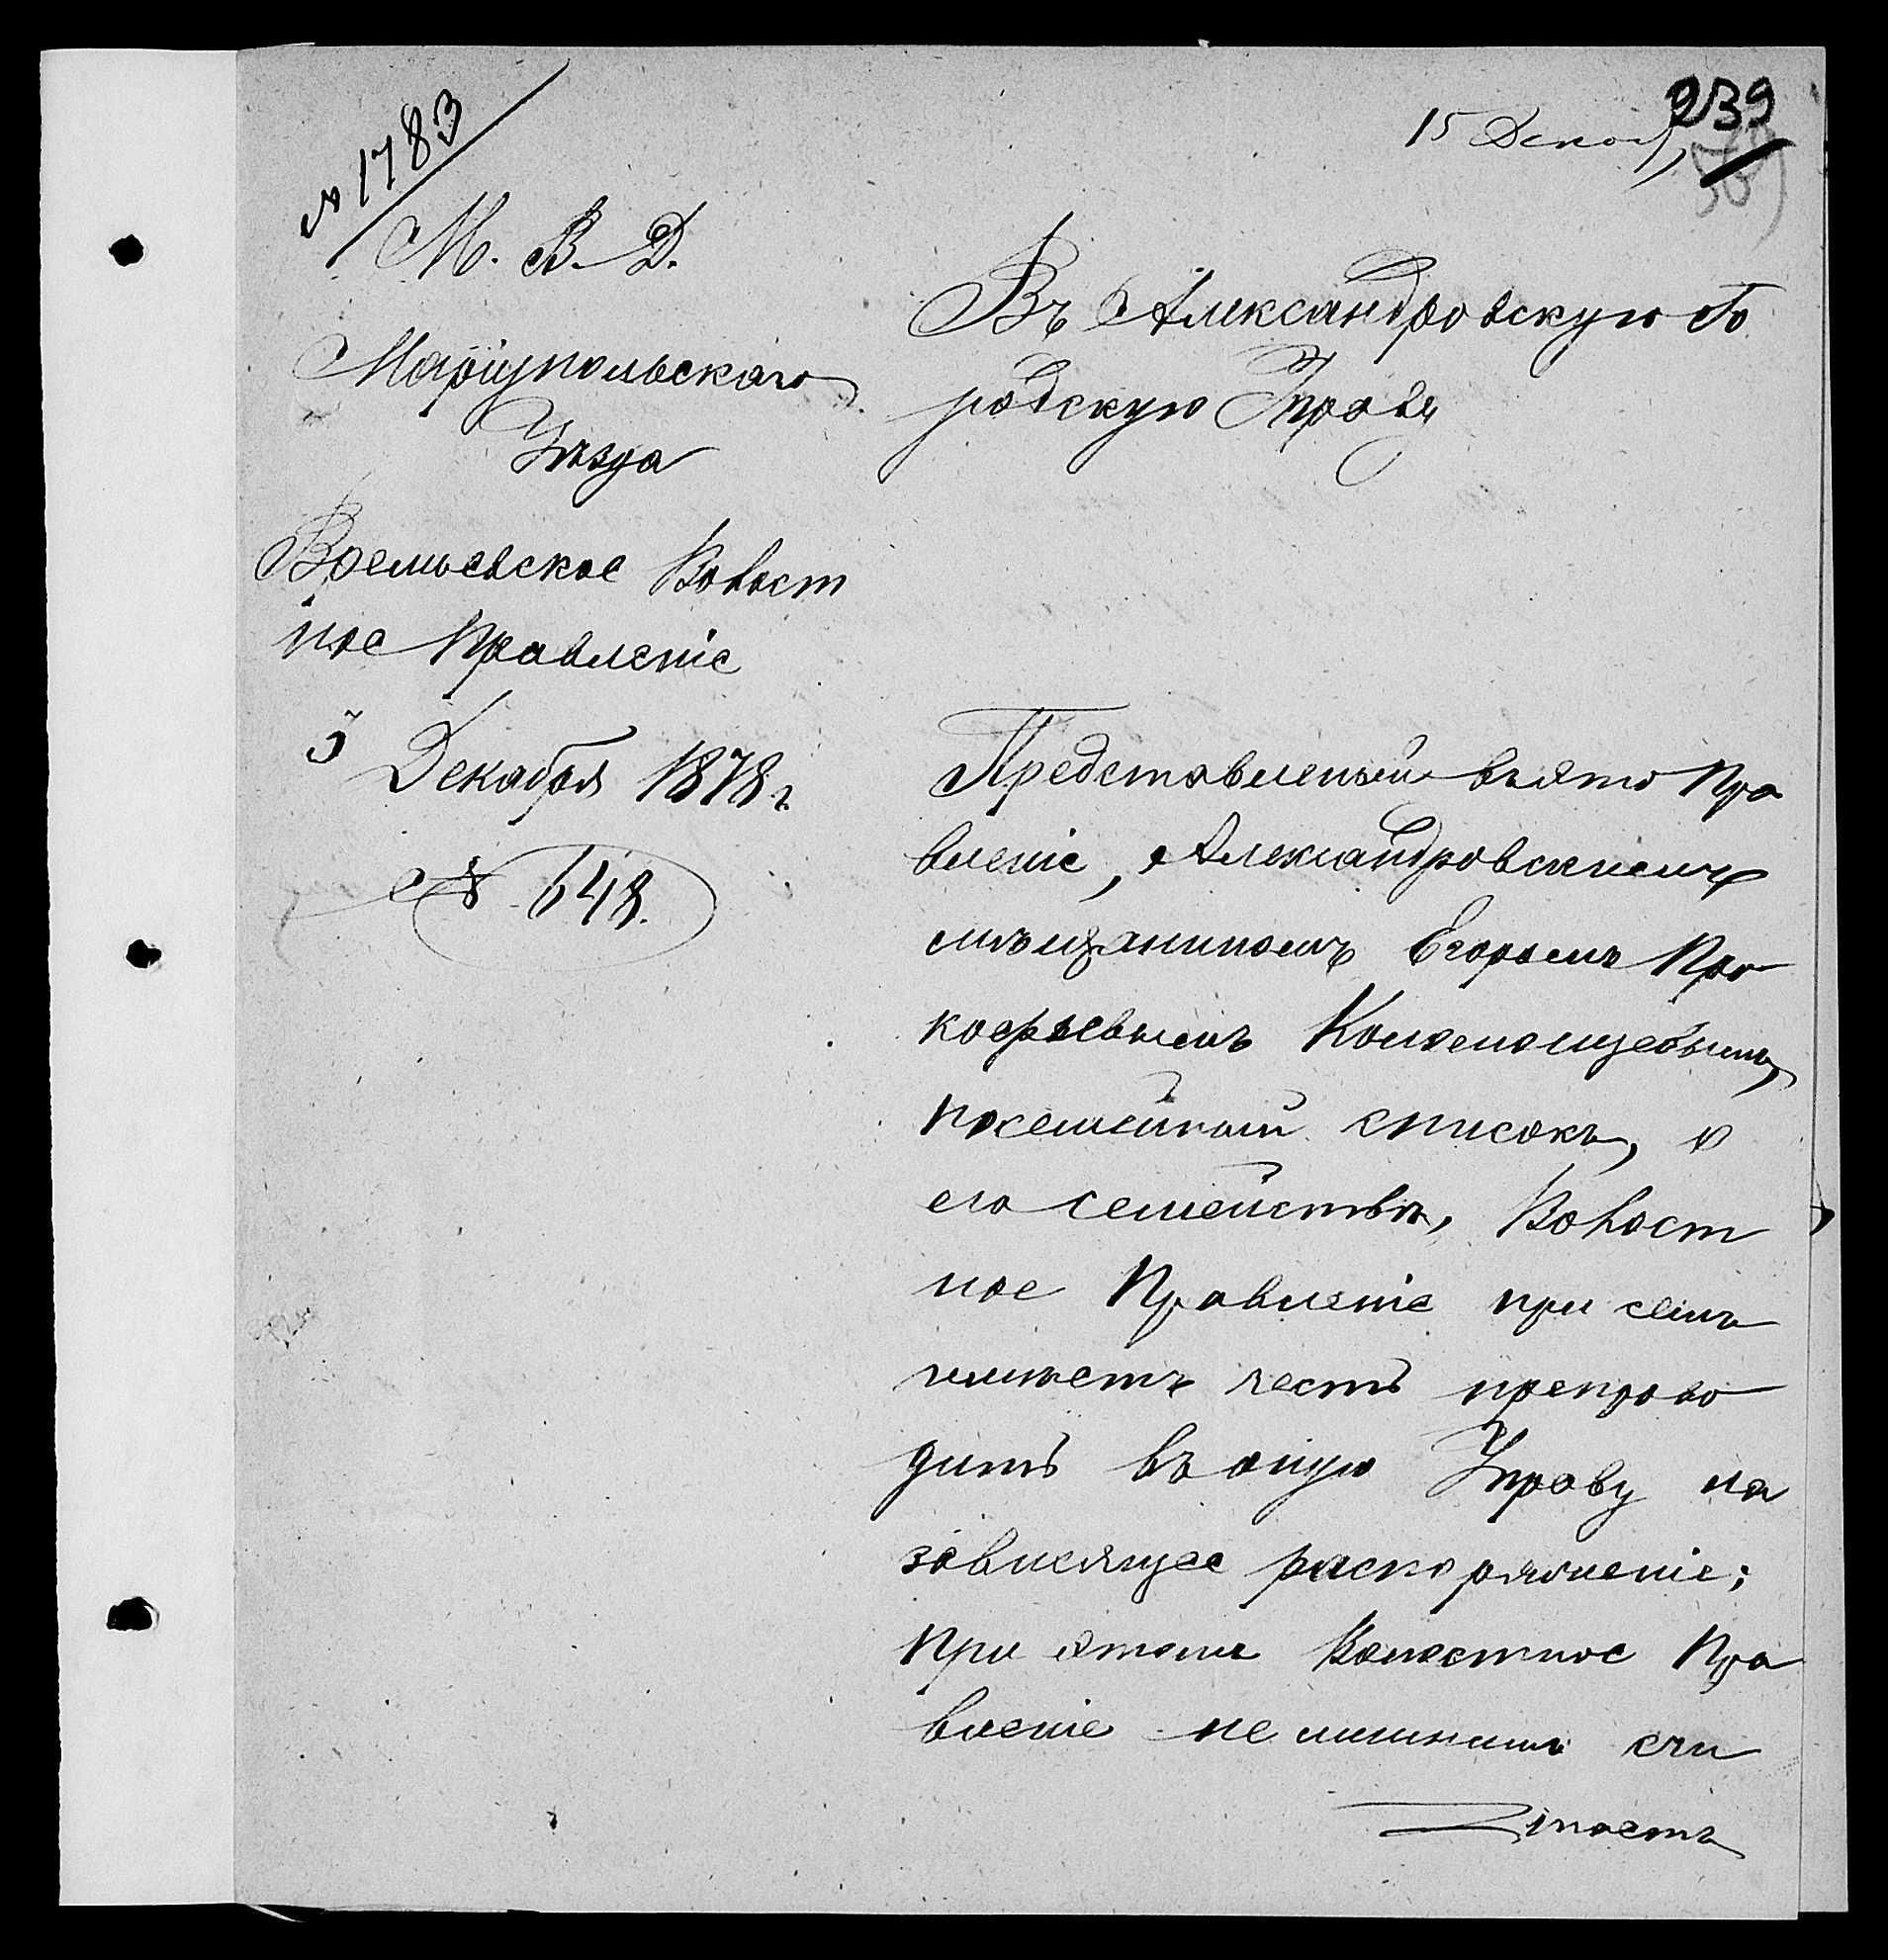 № 1783
239
15 Декаб,
М. В. Д.
Маріупольскаго
Уѣзда
Времьевское Волост
ное Правленіе
5 Декабря 1878 г.
№ 648.
Въ Александровскую Го
родскую Управу
Представленый въ это Пра
вленіе, Александровскимъ
мѣщаниномъ Егоромъ Про
кофьевымъ
посемейный списокъ, о
его семействѣ, Волост
ное Правленіе при семъ
имѣетъ честь препрово
дить въ оную Управу на
зависящее распоряженіе;
При этомъ Волостное Пра
вленіе не лишнимъ счи
таетъ